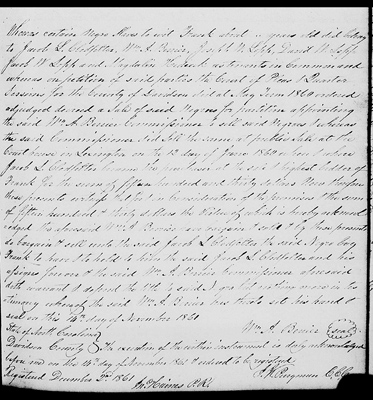 Whereas certain Negro Slaves to wit Frank aged years did belong
to Jacob L Clodfelter, Wm A. Owens, Joseph W. Lopp, David W Lopp
Jacob W Lopp and as tenants in Common and
whereas on petition of said parties the Court of Pleas & Quarter
Sessions for the County of Davidson did at May Term 1860 ordered
adjudged decreed a Sale of said Negroes for partition appointing
the said Wm A. Commissioner to sell said Negroes & whereas
the said Commissioner did sell the same at public sale at the
Court house in Lexington on the 12 day of June 1860 when & where
Jacob L Clodfelter became the purchaser at he said highest bidder of
Frank for the sum of fifteen hundred and thirty dollars Now therefore
these presents witnesseth that in consideration of the premises & the sum
of fifteen hundred & thirty dollars the receipt of which is hereby acknowl
edged the aforesaid Wm A. has bargain & sold & by these presents
do bargain & sell unto the said Jacob L Clodfelter the said Negro boy
Frank to have & to hold to him the said Jacob L Clodfelter and his
assigns forever & the said Wm A. Commissioner aforesaid
doth warrant & defend the title to said Negro but nothing more in tes
timony whereof the said Wm A. has hereto set his hand &
seal on this 16th day of November 1861
Wm A. (seal)
State of North Carolina
Davidson County The execution of the within instrument is duly acknowledged
before me on the 16th day of November 1861 & ordered to be registered
Registered December 3rd 1861
C. F. Lowe
Haines P.R.